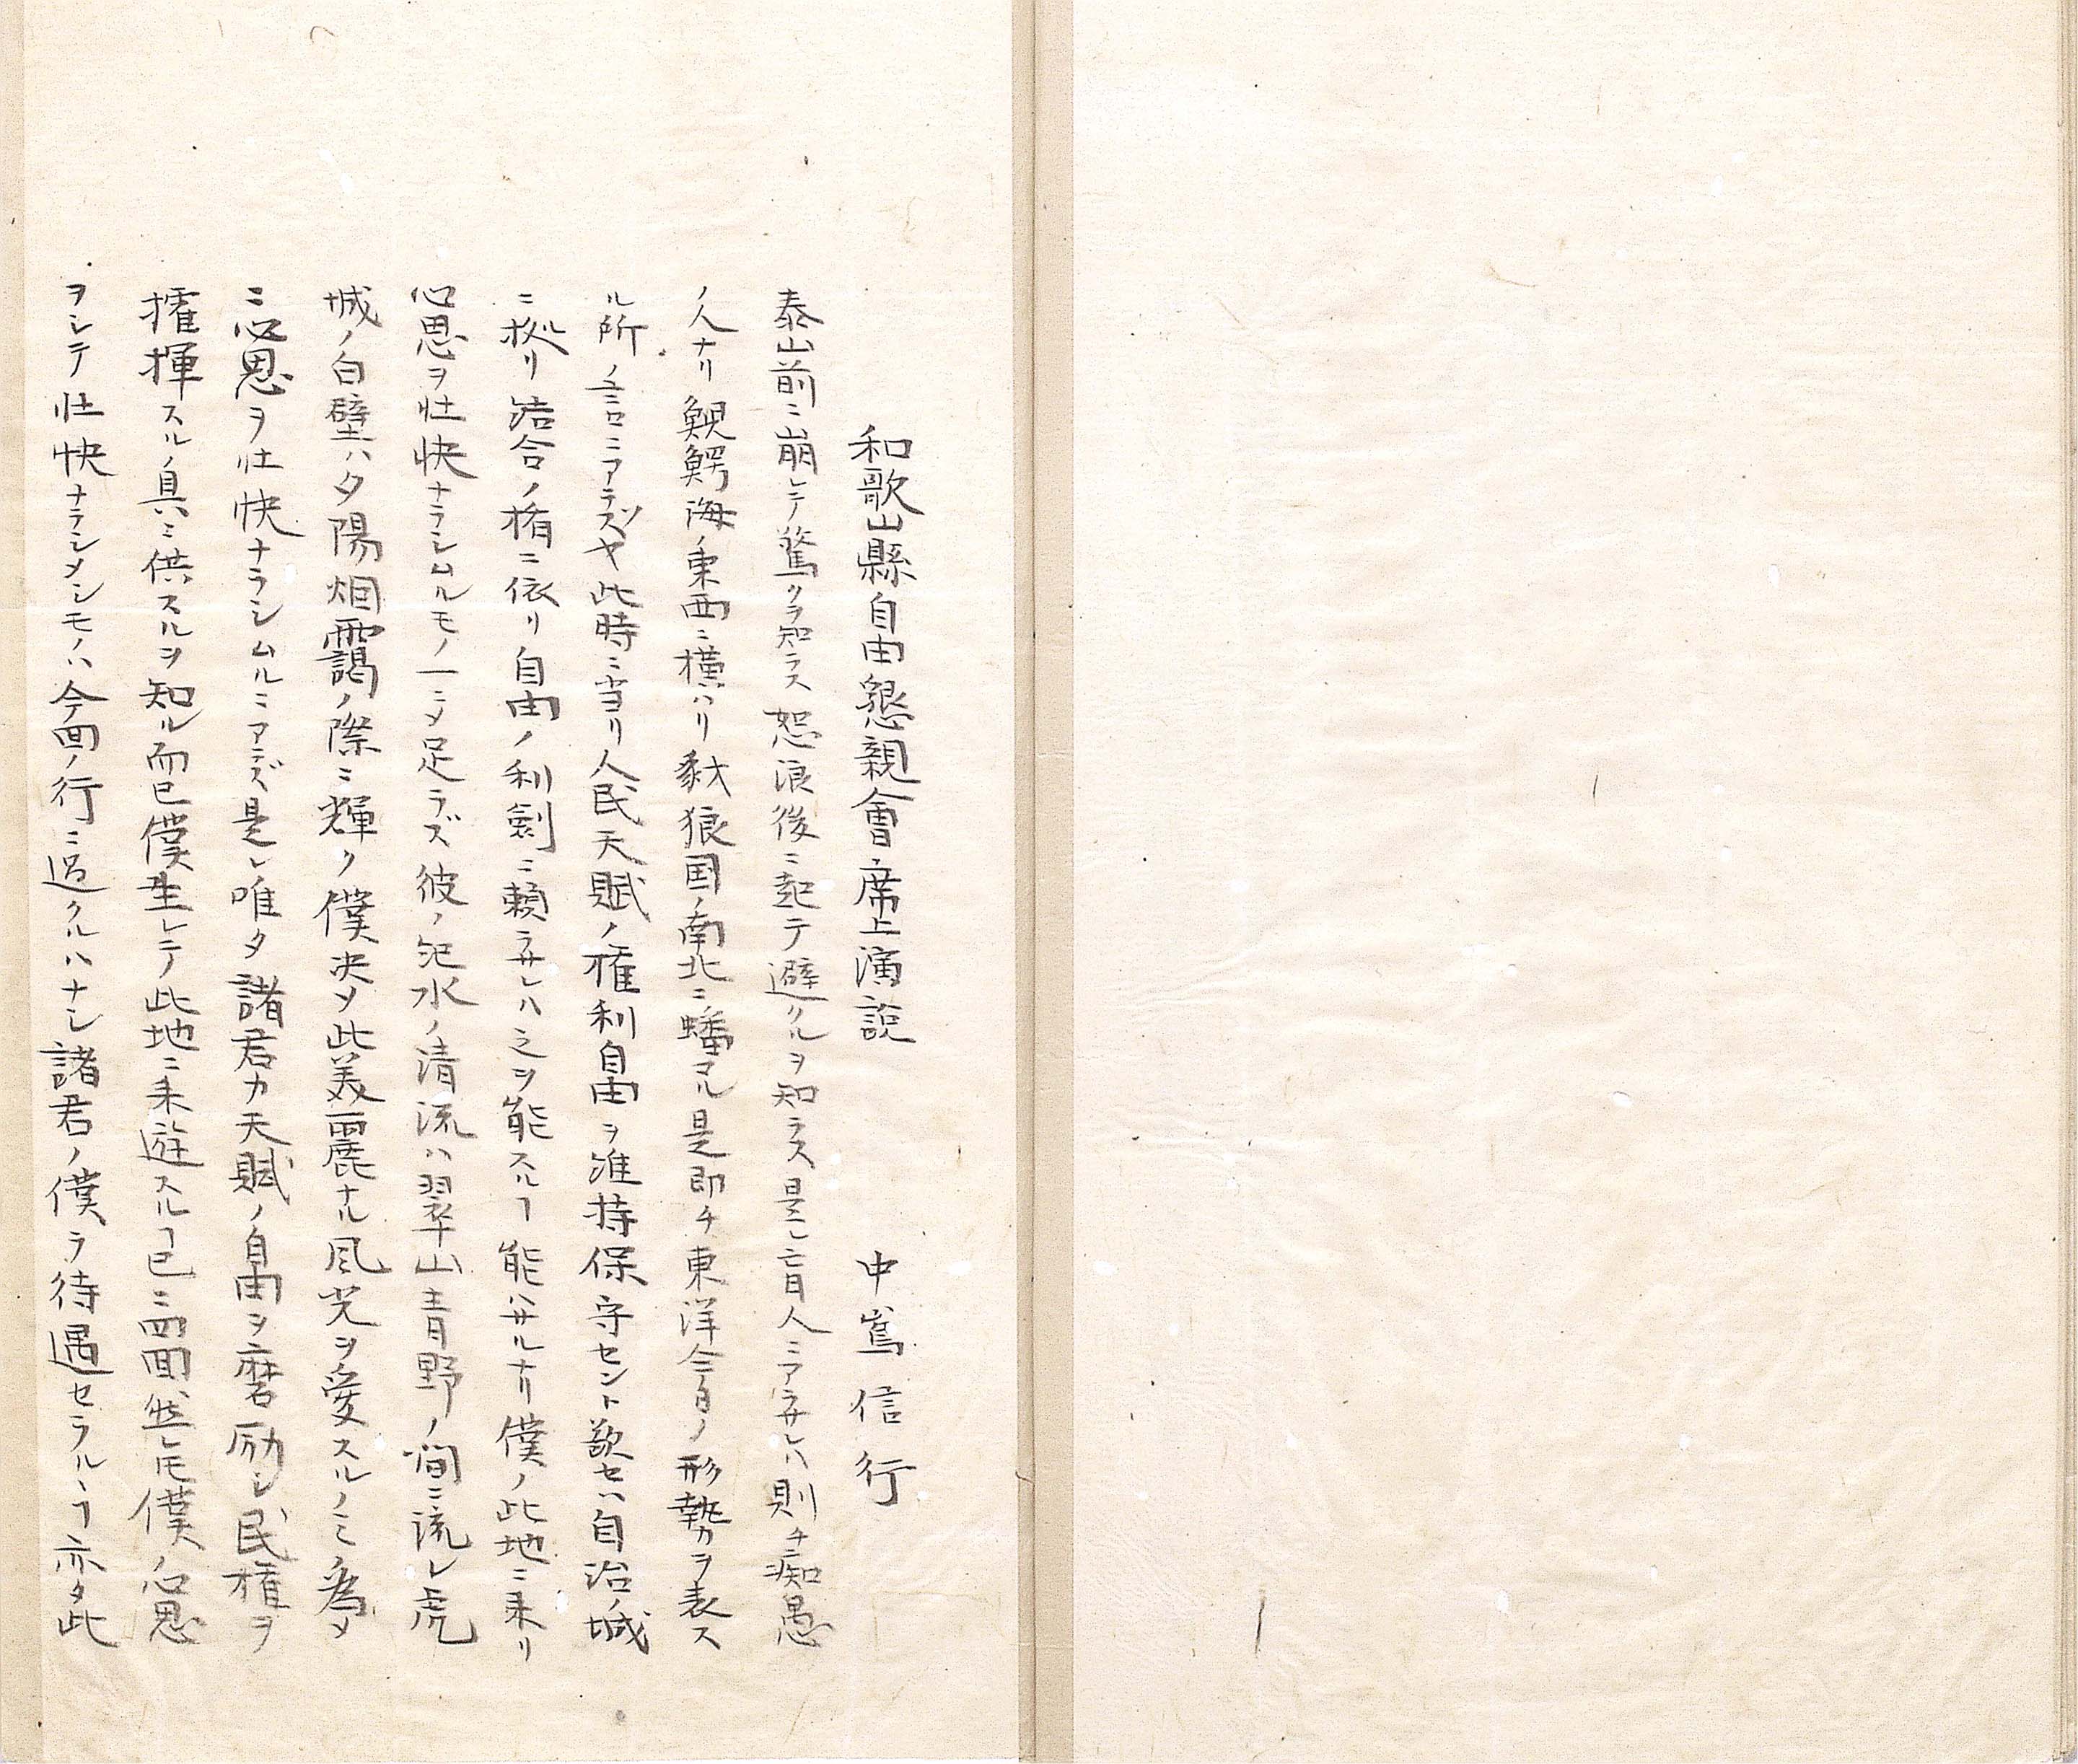 和歌山縣自由懇親會席上演説
中嶌信行
泰山前ニ崩レテ驚クヲ知ラス恕浪後ニ起テ避クルヲ知ラス是レ盲人ニアラサレハ則チ痴愚
ノ人ナリ鯢鰐海ノ東西ニ横ハリ豺狼国ノ南北ニ蟠マル是即チ東洋今日ノ形勢ヲ表ス
ル所ノ言ニアラズヤ此時ニ当リ人民天賦ノ権利自由ヲ維持保守セント欲セハ自治ノ城
ニ拠リ結合ノ楯ニ依リ自由ノ利劍ニ頼ラサレハ之ヲ能スルヿ能ハサルナリ僕ノ此地ニ来リ
心思ヲ壮快ナラシムルモノ一ニメ足ラズ彼ノ紀水ノ清流ハ翠山青野ノ間ニ流レ虎
城ノ白壁ハ夕陽烟靄ノ際ニ輝ク僕决メ此美麗ナル風光ヲ愛スルノミノ為メ
ニ心思ヲ壮快ナラシムルニアラズ是レ唯タ諸君カ天賦ノ自由ヲ磨励シ民権ヲ
擴揮スルノ具ニ供スルヲ知ル而已僕生レテ此地ニ来遊スルヿ已ニ両回然レ𪜈僕ノ心思
ヲシテ壮快ナラシメシモノハ今回ノ行ニ過クルハナシ諸君ノ僕ヲ待遇セラルヽヿ亦タ此